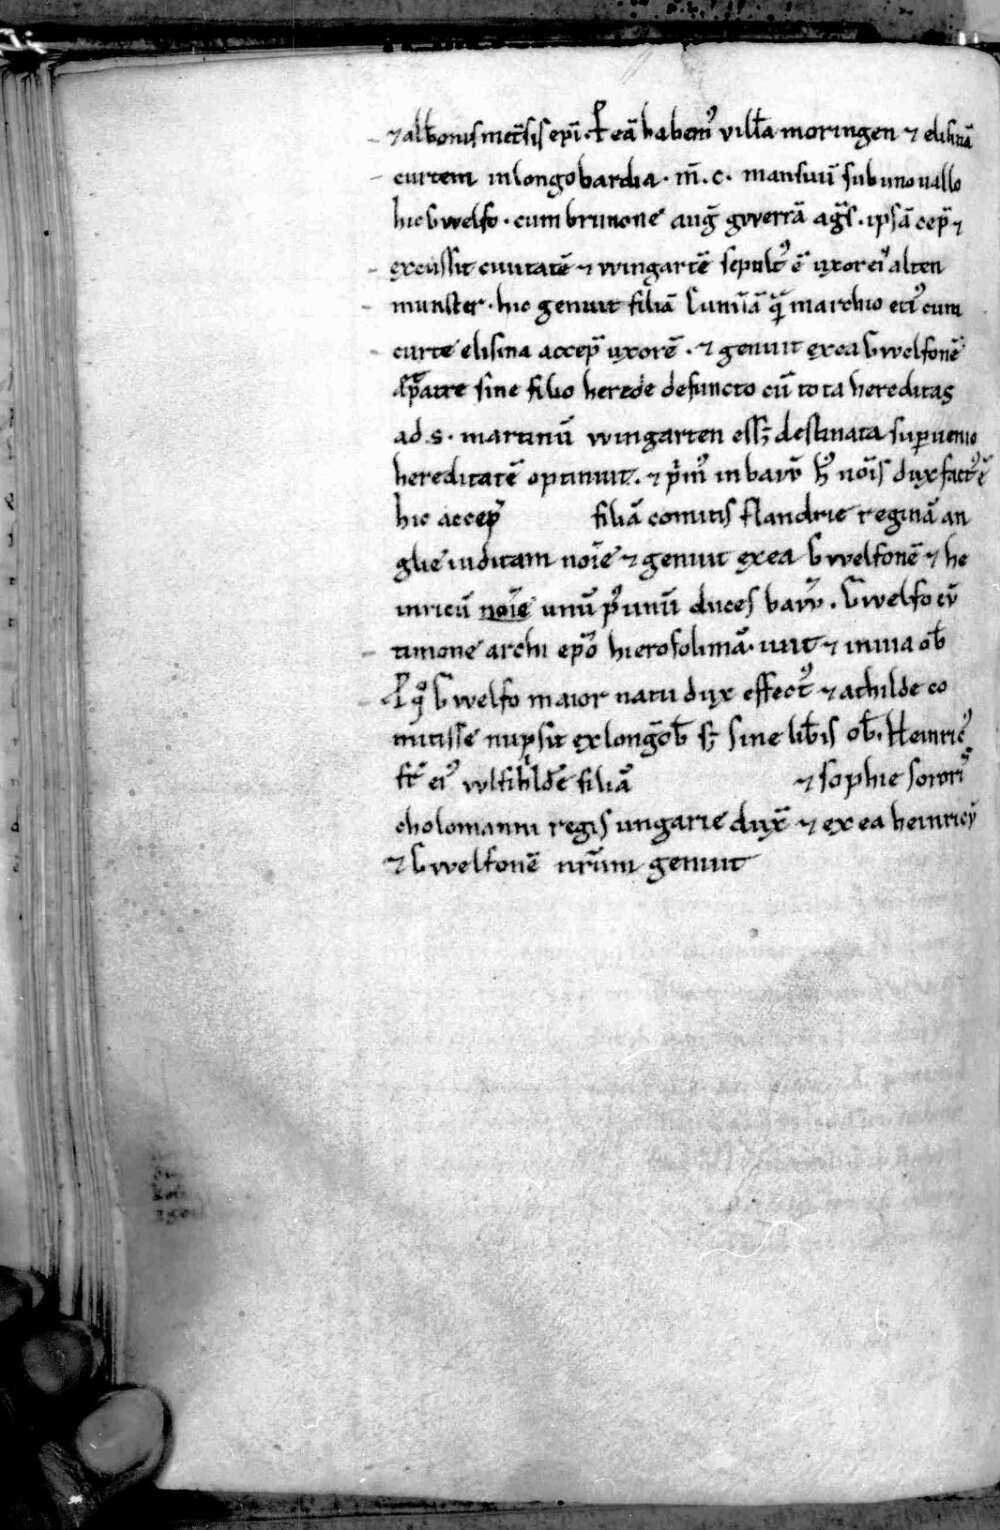 ⁊ alb̄onis met̄sis ep̄i. P̄ eā habem᷒ vill̄a moringen ⁊ elisinā
curtem in longobardia · m̄. c. mansuū sub uno uallo
hic Gwelfo · cum brunone auḡ gwerrā aḡs · ipsā cep̄ ⁊
excussit ciuitatē ⁊ wingartē sepult᷒ ē uxor ei᷒ alten
munster · hic genuit filiā Cunizā q̄m marchio etī cum
curte elisina accep̄ uxorē · ⁊ genuit ex ea Gwelfonē
q̄ p̄atre sine filio herede defuncto cū tota hereditas
ad .s. martinū wingarten ess; destinata superuenio
hereditatē optinuit. ⁊ p̄m᷒ in bauū h᷒ nōīs dux fact᷒ ē
hic accep̄ filiā comitis flandrie reginā an
glie iuditam noīe ⁊ genuit ex ea Gwelfonē ⁊ he
inricū noīe unū p᷒ unū duces bauū. Gwelfo cū
timone archi ep̄o hierosolimā · iuit ⁊ in uia ob̄
P̄ q̊ Gwelfo maior natu dux effect᷒ ⁊ athilde co
mitisse nupsit ex longōb̄ s; sine lib̄is ob̄. Heinric᷒
fr̄ ei᷒ wlfihlde filiā ⁊ sophie soror᷒
cholomanni regis ungarie dux̄ ⁊ ex ea heinricū
⁊ Gwelfonē nr̄um genuit